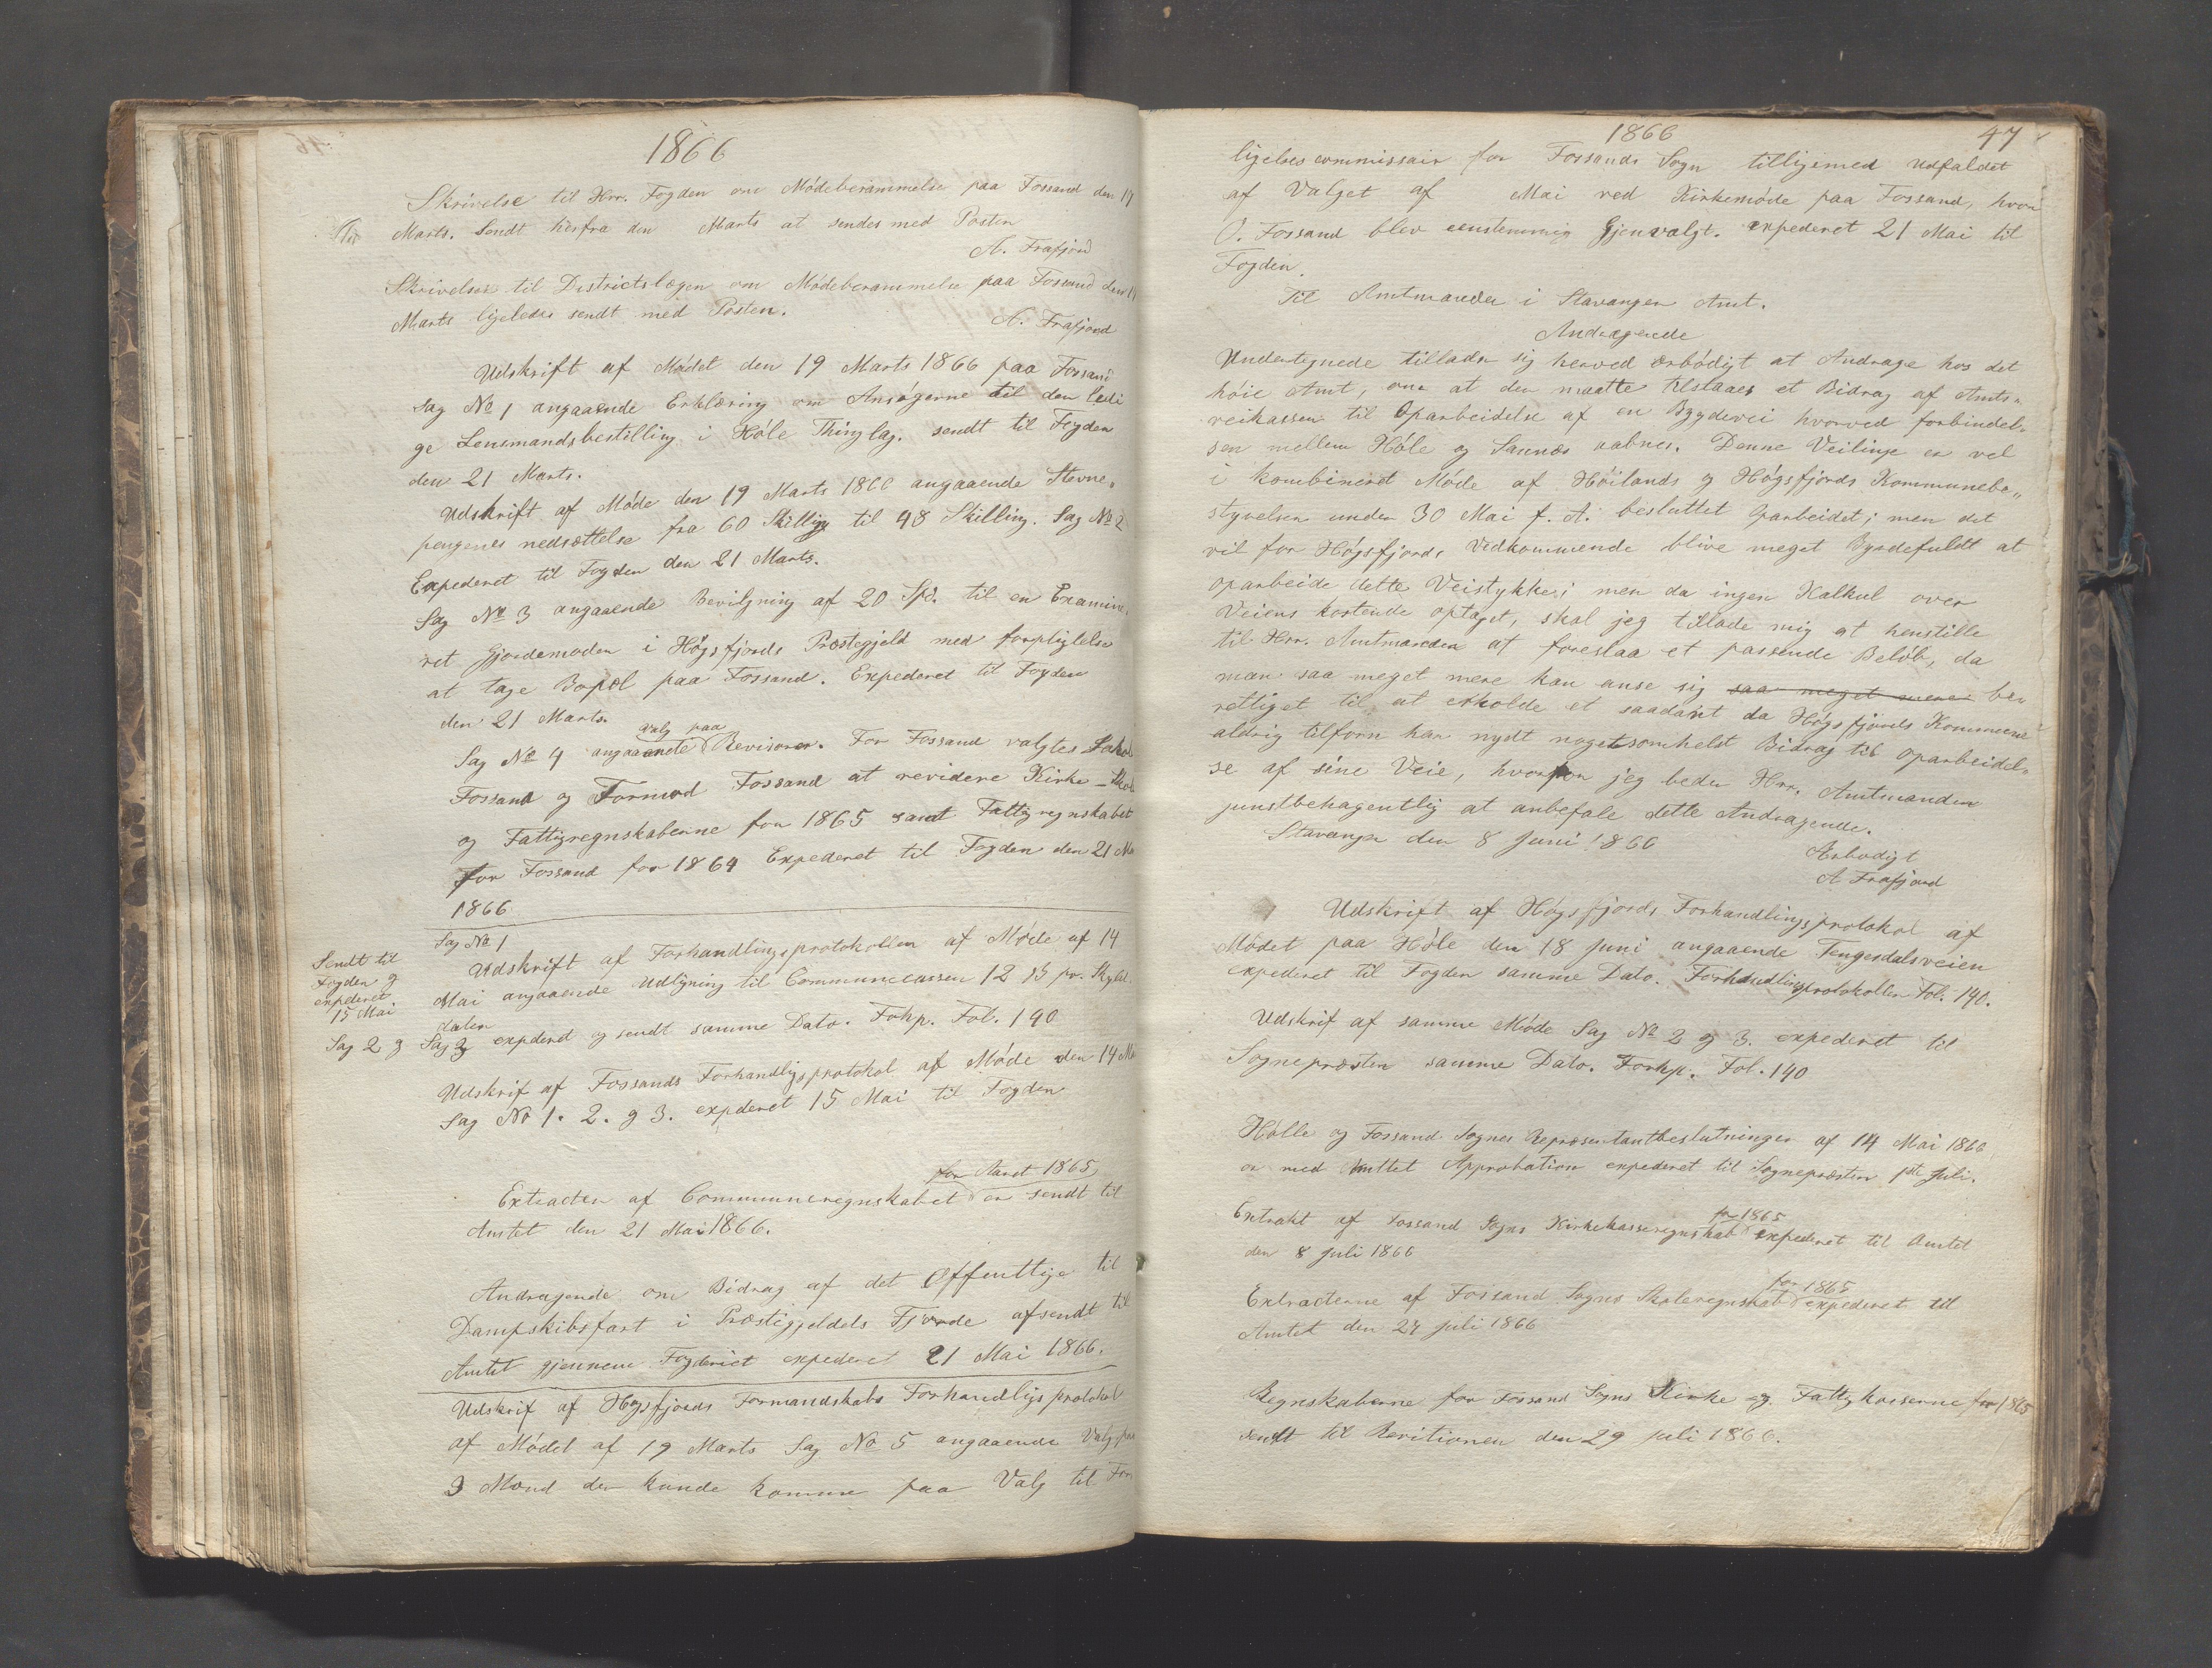 1866
Skrivelse til Hrr. Fogden om Mödeberammelse paa Fossand den 19
Marts. Sendt herfra den Marts at sendes med Posten
A. Frafjord
Skrivelse til Districtslægen om Mödeberammelse paa Fossand den 19
Marts ligeledes sendt med Posten.
A. Frafjord
Udskrift af Mödet den 19 Marts 1866 paa Fossand
Sag No 1 angaaende Erklæring om Ansögerne til den ledi
ge Lensmandsbestilling i Höle Thinglag. sendt til Fogden
den 21 Marts.
Udskrift af Möde den 19 Marts 1866 angaaende Stevne„
pengenes nedsættelse fra 60 Skilling til 48 Skilling. Sag No 2
Expederet til Fogden den 21 Marts.
Sag No 3 angaaende Bevilgning af 20 Spd. til en Examine„
ret Gjordemoder i Högsfjords Præstegjeld med forpligtelse
at tage Bopæl paa Fossand. Expederet til Fogden
den 21 Marts.
valg paa
Sag No 4 angaaende Revisorer. For Fossand valgtes Jakob
Fossand og Tormod Fossand at revidere Kirke – Skole
og Fattigregnskaberne for 1865 samt Fattigregnskabet
for Fossand for 1864 Expederet til Fogden den 21 Ma
1866
Sag No 1
Sendt til
Fogden og
expederet
15 Mai
Udskrift af Forhandlingsprotokollen af Möde af 14
Mai angaaende Udligning til Communecassen 12 ß pr. Skyld
daler
Sag 2 og Sag 3 expederet og sendt samme Dato. Fohp. Fol. 190
Udskrif af Fossands Forhandligsprotokol af Möde den 14 Ma
Sag No 1. 2. g 3. expderet 15 Mai til Fogden
for Aaret 1865
Extracten af Communeregnskabet er sendt til
Amtet den 21 Mai 1866.
Andragende om Bidrag af det Offentlige til
Dampskibsfart i Præstegjeldets Fjorde afsendt til
Amtet gjennem Fogderiet expederet 21 Mai 1866.
Udskrif af Högsfjords Formandskabs Forhandligsprotokol
af Mödet af 19 Marts Sag No 5 angaaende Valg paa
3 Mænd der kunde komme paa Valg til For
1866
47
ligelsescommissair for Fossands Sogn tilligemed Udfaldet
af Valget af Mai ved Kirkemöde paa Fossand, hvor
O. Fossand blev eenstemmig Gjenvalgt. expederet 21 Mai til
Fogden.
Til Amtmanden i Stavanger Amt.
Andragende
Undertegnede tillader sig herved ærbödigt at Andrage hos det
höie Amt, om at der maatte tilstaaes et Bidrag af Amts„
veikassen til Oparbeidelse af en Bygdevei hvorved forbindel„
sen mellem Höle og Sannæs aabnes. Denne Veilinje er vel
i kombineret Möde af Höilands og Högsfjords Kommunebe„
styrelsen under 30 Mai f. A. besluttet Oparbeidet; men det
vil for Högsfjords Vedkommende blive meget Byrdefuldt at
oparbeide dette Veistykke; men da ingen Kalkul over
Veiens kostende optaget, skal jeg tillade mig at henstille
til Hrr. Amtmanden at foreslaa et passende Belöb, da
man saa meget mere kan anse sig saa meget mere be„
rettiget til at erholde et saadant da Högsfjords Kommune
aldrig tilforn har nydt nogetsomhelst Bidrag til Oparbeidel„
se af sine Veie, hvorfor jeg beder Hrr. Amtmanden
gunstbehagentlig at anbefale dette Andragende.
Stavanger den 8 Juni 1866
Ærbodigt
A Frafjord
Udskrift af Högsfjords Forhandlingsprotokol af
Mödet paa Höle den 18 Juni angaaende Tengesdalsveien
expederet til Fogden samme Dato. Forhandlingsprotokollen Fol. 190.
Udskrif af samme Möde Sag No 2 og 3. expederet til
Sognepræsten samme Dato. Forhp. Fol. 190
Hölle og Fossand Sognes Repræsentantbeslutninger af 14 Mai 1866
er med Amttet Approbation expederet til Sognepræsten 1ste Juli.
for 1865
Extrakt af Fossand Sogns Kirkekasseregnskab expederet til Amtet
den 8 Juli 1866
for 1865
Extracterne af Fossand Sogns Skoleregnskab expederet til
Amtet den 24 Juli 1866
Regnskaberne for Fossand Sogns Kirke og Fattigkasserne for 1865
sendt til Revitionen den 29 Juli 1866.